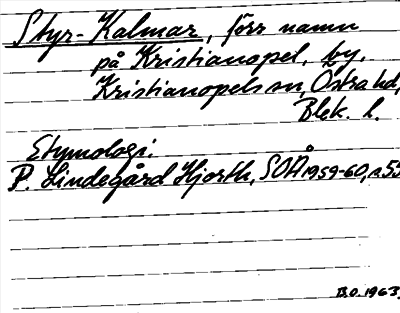 Styr-Kalmar, förr namn
på Kristianopel, by,
Kristianopels sn, Östra hd,
Blek. l.
Etymologi.
P. Lindegård Hjorth, SOÅ 1959-60, s. 55
B.O. 1963.